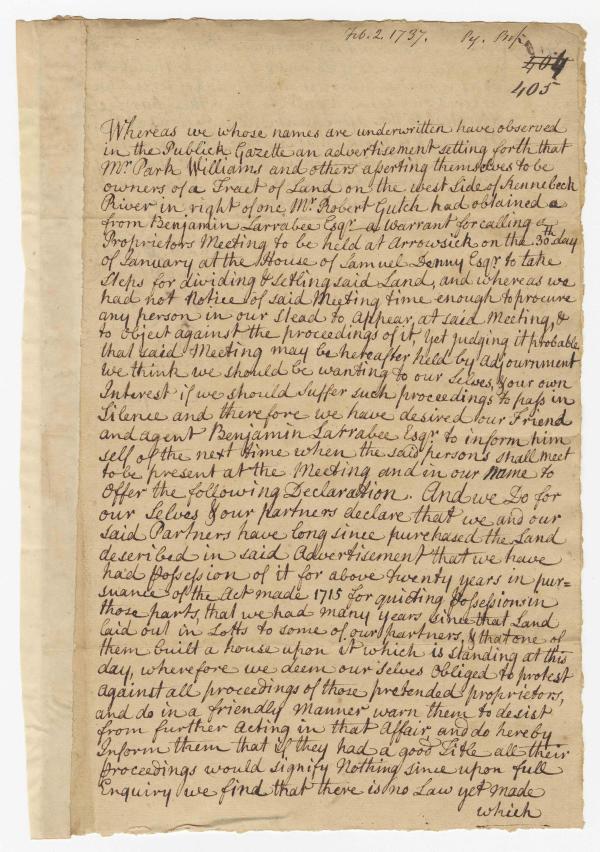 Feb. 2. 1737. Py. Prop
404
405
Whereas we whose names are underwritten have observed
in the Publick Gazette an advertisement setting forth that
Mr. Park Williams and others aserting themselves to be
owners of a Tract of Land on the west side of Kennebeck
River in right of one Mr. Robert Gutch had obtained a
from Benjamin Larrabee Esqr. a warrant for calling a
Proprietors Meeting to be held at Arrowsick on the 30th day
of January at the House of Samuel Denny Esqr. to take
Steps for dividing & setling said Land, and whereas we
had not Notice of said Meeting time enough to procure
any person in our stead to Appear, at said Meeting, &
to object against the proceedings of it, Yet judging it probable
that said Meeting may be hereafter held by adjournment
we think we should be wanting to our selves, & our own
Interest if we should suffer such proceedings to pass in
Silence and therefore we have desired our Friend
and agent Benjamin Larrabee Esqr. to inform him
self of the next time when the said persons shall meet
to be present at the Meeting and in our Name to
Offer the following Declaration. And we Do for
our selves & our partners declare that we and our
said Partners have long since purchased the Land
described in said Advertisement that we have
had Possession of it for above twenty years in pur=
suance of the Act made 1715 for quieting Possessions in
those parts, that we had many years since that Land
laid out in Lotts to some of our partners, & that one of
them built a house upon it which is standing at this
day, wherefore we deem our selves Obliged to protest
against all proceedings of those pretended proprietors,
and do in a friendly manner warn them to desist
from further Acting in that Affair, and do hereby
Inform them that if they had a good Title all their
Proceedings would signify Nothing since upon full
Enquiry we find that there is no Law yet made
which